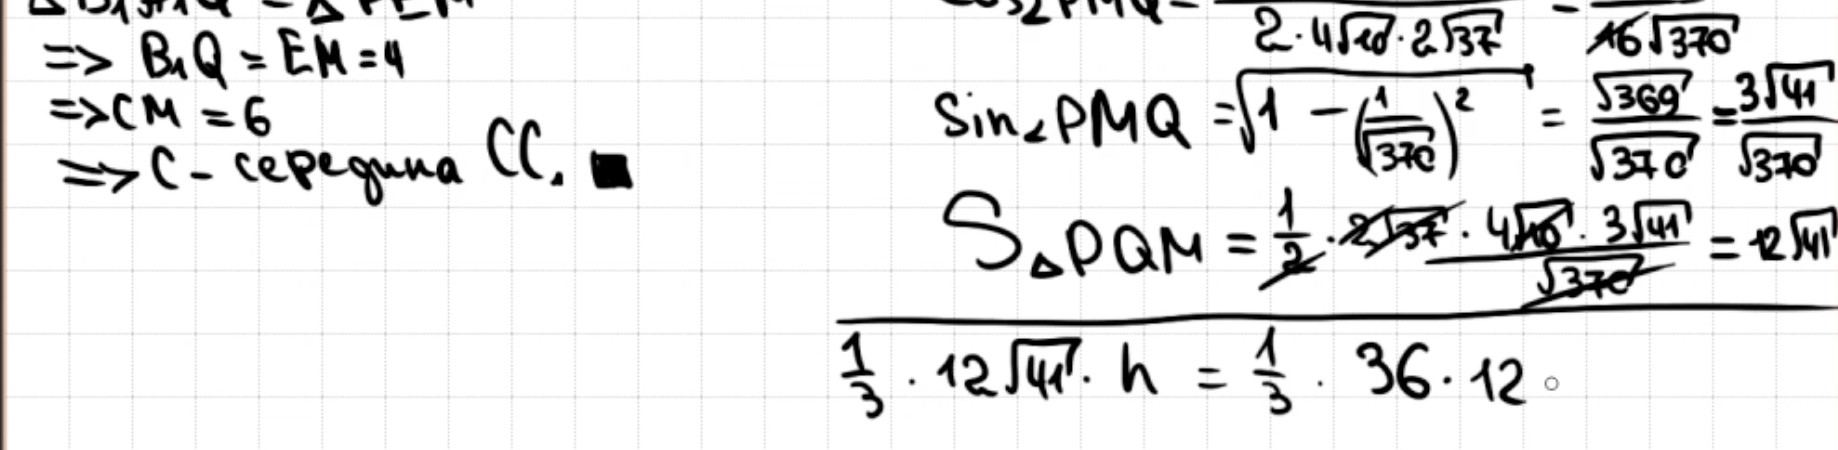 => B₁Q = EM = 4
=> CM = 6
=> C - середина CC₁ ■
2·4√10·2√37 = 16√370
Sin∠PMQ = √(1 - (1/√370)²) = √369/√370 = 3√41/√370
S△PQM = 1/2 · 2√37 · 4√10 · 3√41/√370 = 12√41
1/3 · 12√41 · h = 1/3 · 36 · 12